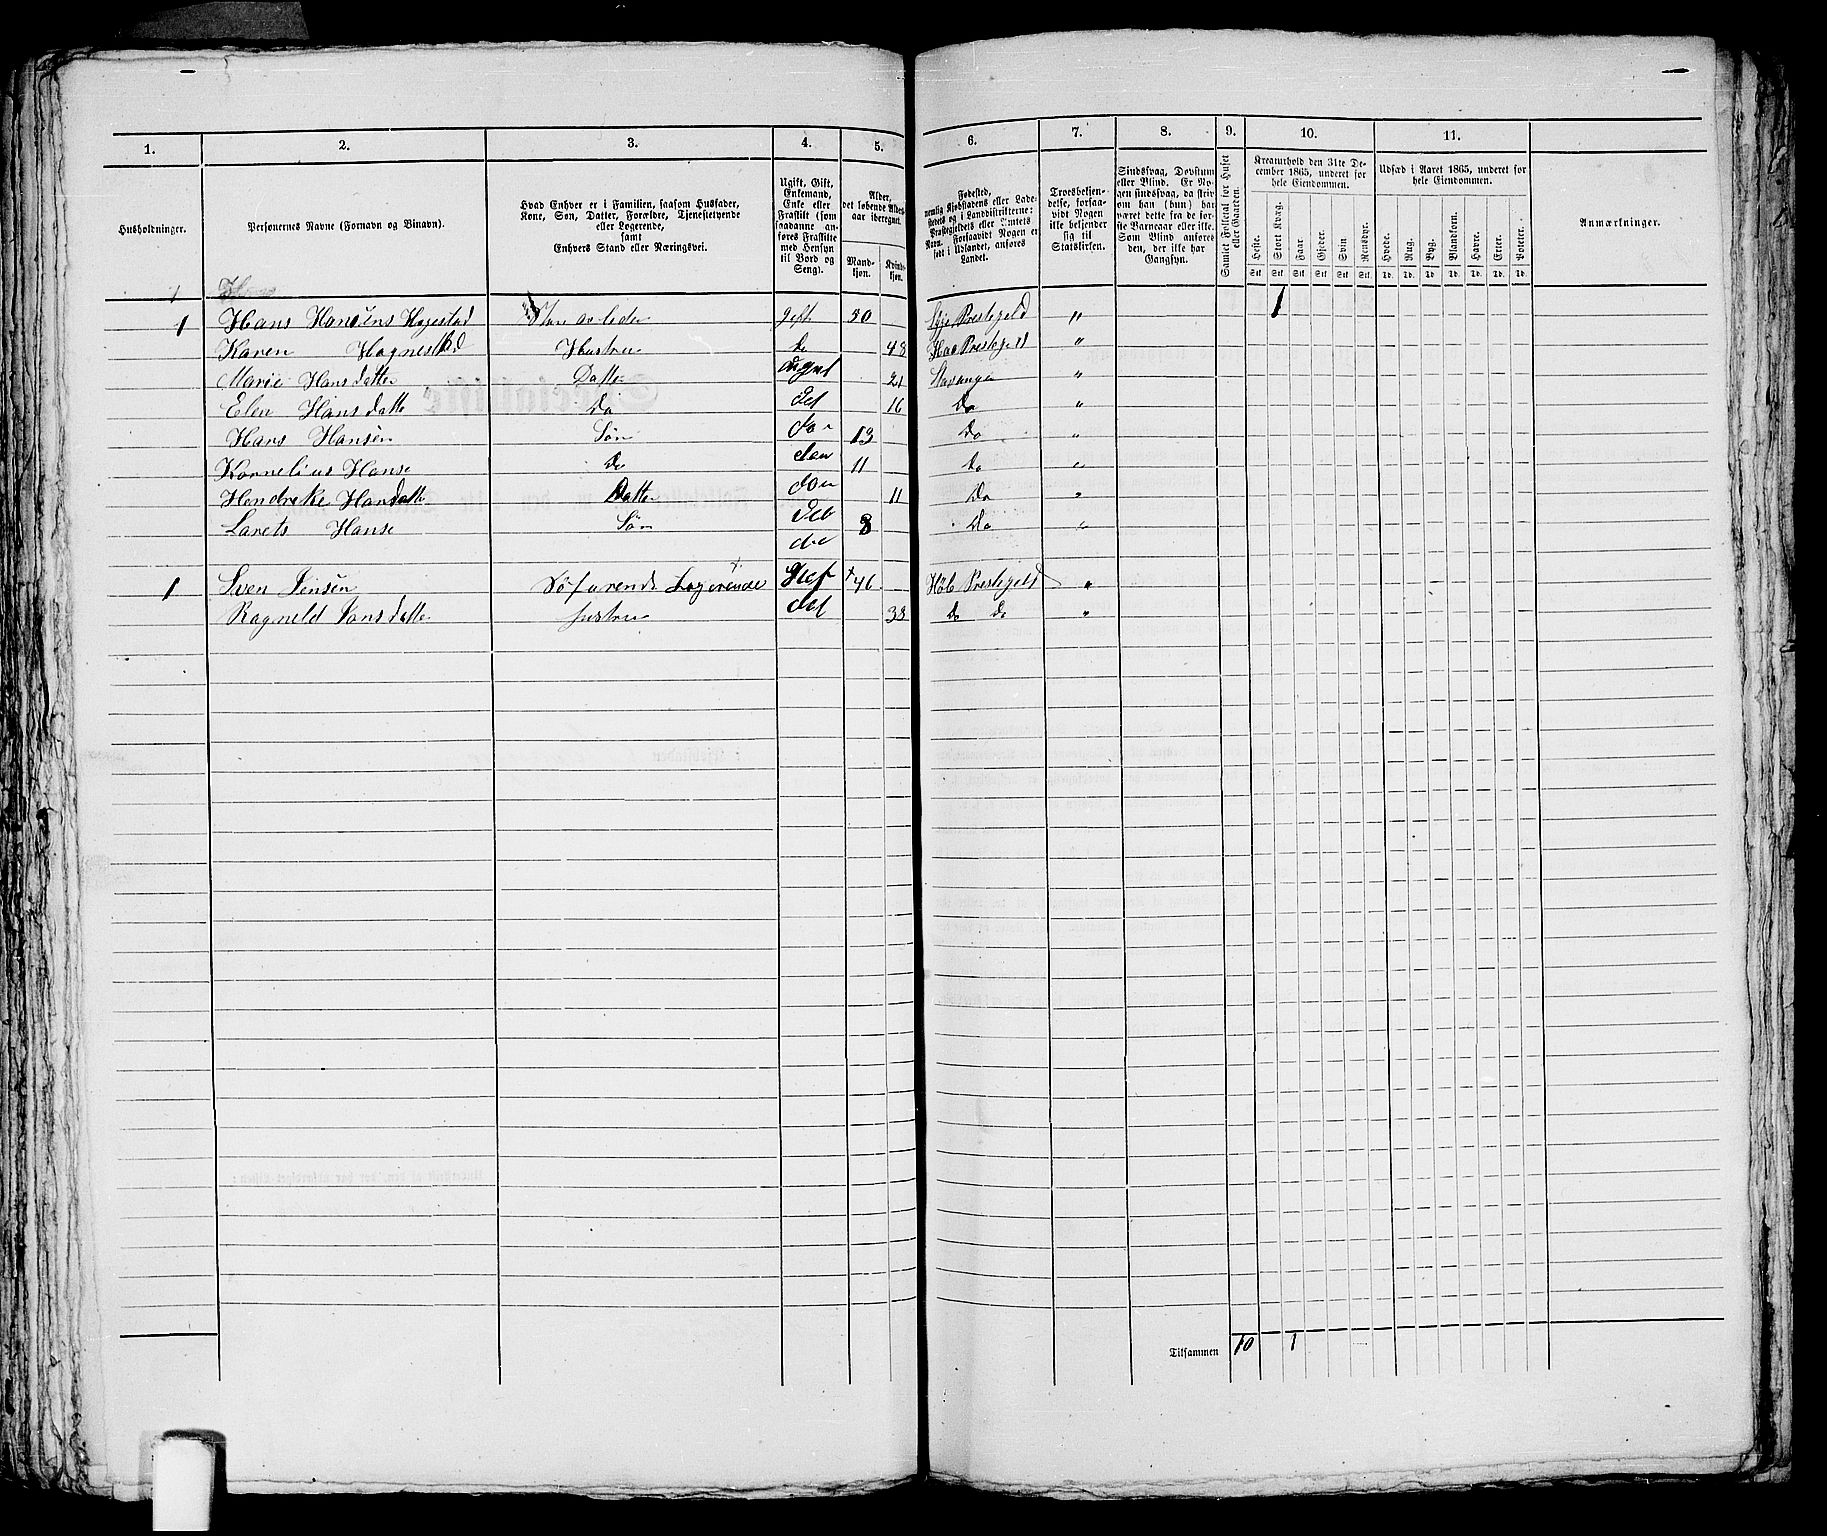 1. 2. 3. 4. 5. 6. 7. 8. 9. 10. 11.
Husholdninger.
Personernes Navne (Fornavn og Binavn).
Hvad Enhver er i Familien, saasom Husfader,
Kone, Søn, Datter, Forældre, Tjenestetyende
eller Logerende,
samt
Enhvers Stand eller Næringsvei.
Ugift, Gift,
Enkemand,
Enke eller
Fraskilt (som
saadanne an-
føres Fraskilte
med Hensyn
til Bord og
Seng).
Alder,
det løbende Alders-
aar iberegnet.
Mand-
kjøn.
Kvind-
kjøn.
Fødested,
nemlig Kjøbstadens eller Lade-
stedets og i Landdistrikterne:
Præstegjeldets eller Amtets
Navn. Forsaavidt Nogen er
født i Udlandet, anføres
Landet.
Troesbekjen-
delse, forsaa-
vidt Nogen
ikke bekjender
sig til
Statskirken.
Sindssvag, Døvstum
eller Blind. Er No-
gen sindssvag, da skriv
om han (hun) har
været dette fra de før-
ste Barneaar eller ikke.
Som Blind anføres
den, der ikke har
Gangsyn.
Samlet Folketal for Huset
eller Gaarden.
Kreaturhold den 31te De-
cember 1865, underet for
hele Eiendommen.
Heste. Stort Kvæg. Faar. Gjeder. Svin. Rensdyr.
Stk. Stk. Stk. Stk. Stk. Stk.
Udsæd i Aaret 1865, underet for
hele Eiendommen.
Hvede. Rug. Byg. Blandkorn. Havre. Erter. Poteter.
Td. Td. Td. Td. Td. Td. Td.
Anmærkninger.
1 Hans Hansens gift 50 Prestegeld " 1
Karen Hustru Do 48 Haa Prestegeld "
Marie Hansdatter Datter ugivt 21 Stavanger "
Elen Hansdatte Do 16 Do "
Hans Hansen Søn 13 Do "
Kornelius Hanse Do 11 Do "
Hendreke Hansdatte Datter 11 Do "
Larets Hanse Søn 8 Do "
1 Sven Jensen Søfarende Logerende 46 Prestegeld "
Ragneld Jonsdatte hustru 38 Do Do "
Tilsammen 10 1